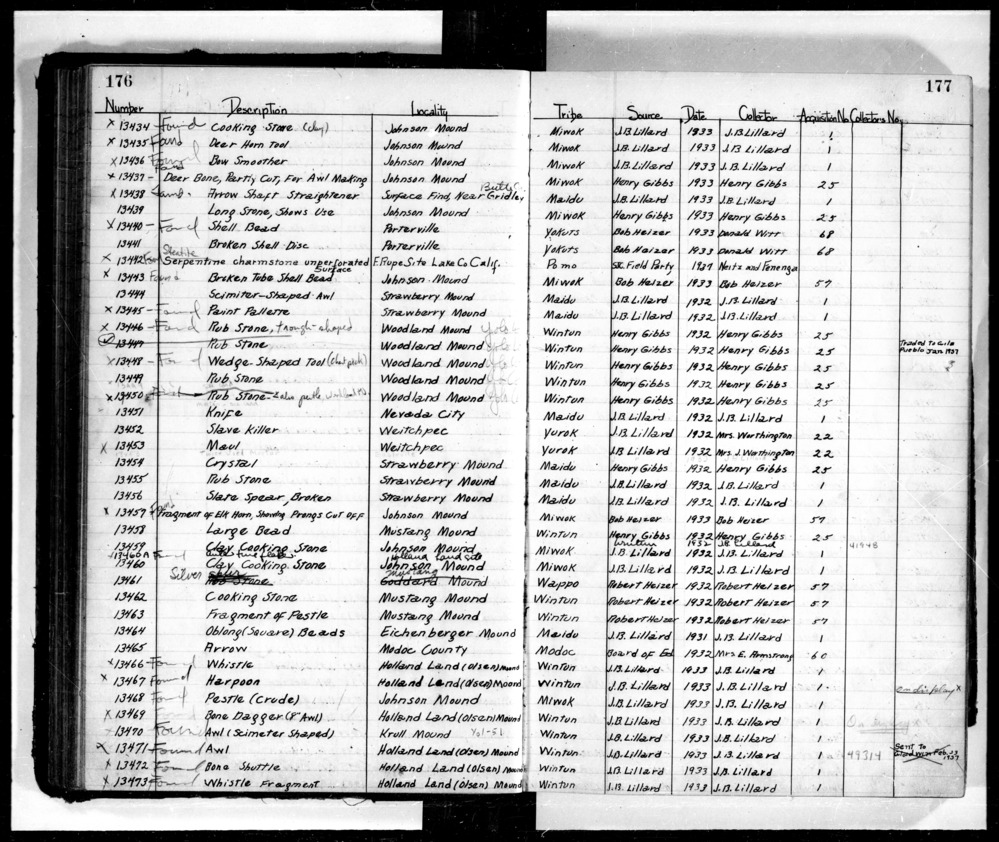 176
177
Number Description Locality Tribe Source Date Collector Aquisition No. Collectors No.
x 13434 - Found Cooking Stone (clay) Johnson Mound Miwok J.B. Lillard 1933 J.B. Lillard 1
x 13435 - Found Deer Horn Tool Johnson Mound Miwok J.B. Lillard 1933 J.B. Lillard 1
x 13436 Found Bow Smoother Johnson Mound Miwok J.B. Lillard 1933 J.B. Lillard 1
x 13437 - Found Deer Bone, Partly Cut, For Awl Making Johnson Mound Miwok Henry Gibbs 1933 Henry Gibbs 25
x 13438 Arrow Shaft Straightener Surface Find, Near Gridley Butte Maidu J.B. Lillard 1933 J.B. Lillard 1
13439 Long Stone, Shows Use Johnson Mound Miwok Henry Gibbs 1933 Henry Gibbs 25
x 13440 - Found Shell Bead Porterville Yokuts Bob Heizer 1933 Donald Witt 68
13441 Broken Shell Disc Porterville Yokuts Bob Heizer 1933 Donald Witt 68
x 13442 Steatite Serpentine charmstone unperforated E. Rupe Site Lake Co Calif. Pomo SJC Field Party 1937 Neitz and Fenenga
x 13443 Found Broken Tube Shell Bead Surface Johnson Mound Miwok Bob Heizer 1933 Bob Heizer 57
13444 Scimiter-Shaped Awl Strawberry Mound Maidu J.B. Lillard 1932 J.B. Lillard 1
x 13445 - Found Paint Pallette Strawberry Mound Maidu J.B. Lillard 1932 J.B. Lillard 1
x 13446 - Found Rub Stone, trough-shaped Woodland Mound Yolo Wintun Henry Gibbs 1932 Henry Gibbs 25
13447 Rub Stone Woodland Mound Yolo Wintun Henry Gibbs 1932 Henry Gibbs 25 Traded to Gila Pueblo Jan 1937
x 13448 - Found Wedge Shaped Tool Woodland Mound Yolo Wintun Henry Gibbs 1932 Henry Gibbs 25
13449 Rub Stone Woodland Mound Yolo Wintun Henry Gibbs 1932 Henry Gibbs 25
x 13450 Rub Stone - also pestle Woodland Mound Yolo Wintun Henry Gibbs 1932 Henry Gibbs 25
13451 Knife Nevada City Maidu J.B. Lillard 1932 J.B. Lillard 1
13452 Slave Killer Weitchpec Yurok J.B. Lillard 1932 Mrs. Worthington 22
x 13453 Maul Weitchpec Yurok J.B. Lillard 1932 Mrs. J. Worthington 22
13454 Crystal Strawberry Mound Maidu Henry Gibbs 1932 Henry Gibbs 25
13455 Rub Stone Strawberry Mound Maidu J.B. Lillard 1932 J.B. Lillard 1
13456 Slate Spear, Broken Strawberry Mound Maidu J.B. Lillard 1932 J.B. Lillard 1
x 13457 Found Fragment of Elk Horn, Showing Prongs Cut Off Johnson Mound Miwok Bob Heizer 1933 Bob Heizer 57
13458 Large Bead Mustang Mound Wintun Henry Gibbs 1932 Henry Gibbs 25
13459 Clay Cooking Stone Johnson Mound Miwok J.B. Lillard 1932 J.B. Lillard 1 41948
x 13460A Found Holland Land site Wintun 1932 J.B. Lillard
13460 Clay Cooking Stone Johnson Mound Miwok J.B. Lillard 1932 J.B. Lillard 1
13461 Silver Rub Stone Goddard Mound Mustang Wappo Robert Heizer 1932 Robert Heizer 57
13462 Cooking Stone Mustang Mound Wintun Robert Heizer 1932 Robert Heizer 57
13463 Fragment of Pestle Mustang Mound Wintun Robert Heizer 1932 Robert Heizer 57
13464 Oblong (Square) Beads Eichenberger Mound Maidu J.B. Lillard 1931 J.B. Lillard 1
13465 Arrow Modoc County Modoc Board of Ed. 1932 Mrs. E. Armstrong 60
x 13466 - Found Whistle Holland Land (Olsen) Mound Wintun J.B. Lillard 1933 J.B. Lillard 1
x 13467 Found Harpoon Holland Land (Olsen) Mound Wintun J.B. Lillard 1933 J.B. Lillard 1 on display x
13468 Found Pestle (Crude) Johnson Mound Miwok J.B. Lillard 1933 J.B. Lillard 1
x 13469 Bone Dagger (or Awl) Holland Land (Olsen) Mound Wintun J.B. Lillard 1933 J.B. Lillard 1
13470 Found Awl (Scimeter Shaped) Krull Mound Yol-51 Wintun J.B. Lillard 1933 J.B. Lillard 1
x 13471 - Found Awl Holland Land (Olsen) Mound Wintun J.B. Lillard 1933 J.B. Lillard 1 49314 Sent to Goodwin Feb. 23 1937
x 13472 Found Bone Shuttle Holland Land (Olsen) Mound Wintun J.B. Lillard 1933 J.B. Lillard 1
x 13473 Found Whistle Fragment Holland Land (Olsen) Mound Wintun J.B. Lillard 1933 J.B. Lillard 1